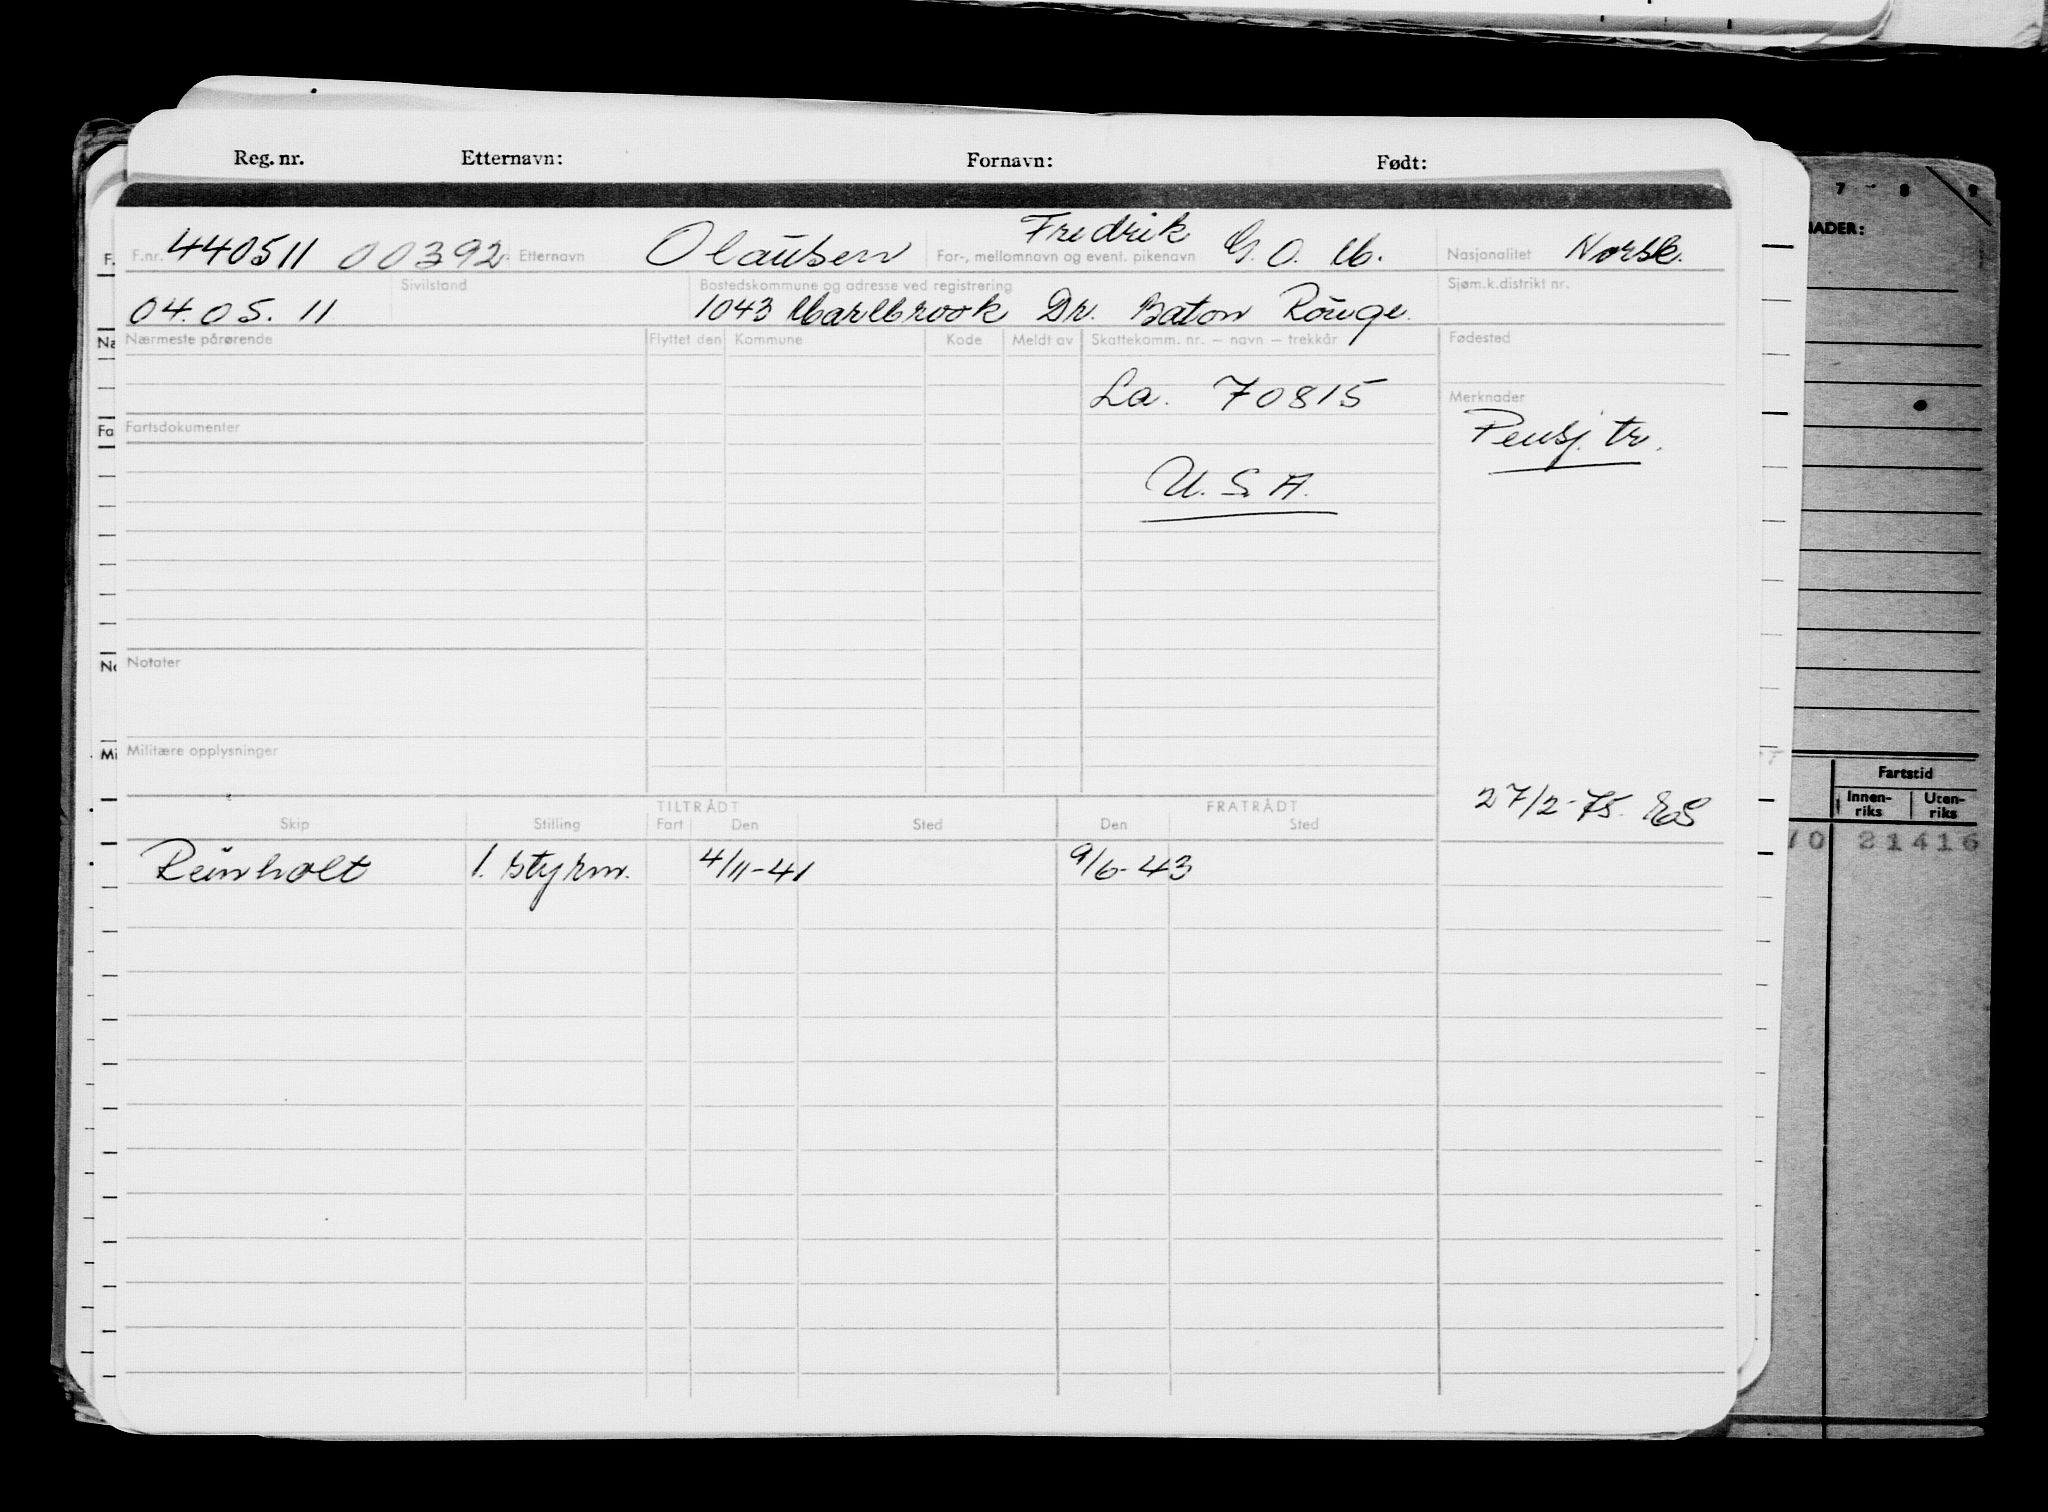 Reg. nr. Etternavn: Fornavn: Født:
F.nr. 440511 00392 Etternavn Olaussen For-, mellomnavn og event. pikenavn Fredrik G. O. M. Nasjonalitet Norsk.
04.05.11 Sivilstand Bostedskommune og adresse ved registrering Sjøm.k.distrikt nr.
1043 Marlbrook Dr. Baton Rouge.
Nærmeste pårørende Flyttet den Kommune Kode Meldt av Skattekomm. nr. – navn – trekkår Fødested
La. 70815
Merknader
Fartsdokumenter
Pensj. tr.
U.S.A.
Notater
Militære opplysninger
TILTRÅDT FRATRÅDT
27/2-75.
Skip Stilling Fart Den Sted Den Sted
Reinholt 1. styrm. 4/11-41 9/6-43
7 8 9
NADER:
Fartstid
Innen-riks Uten-riks
70 21416